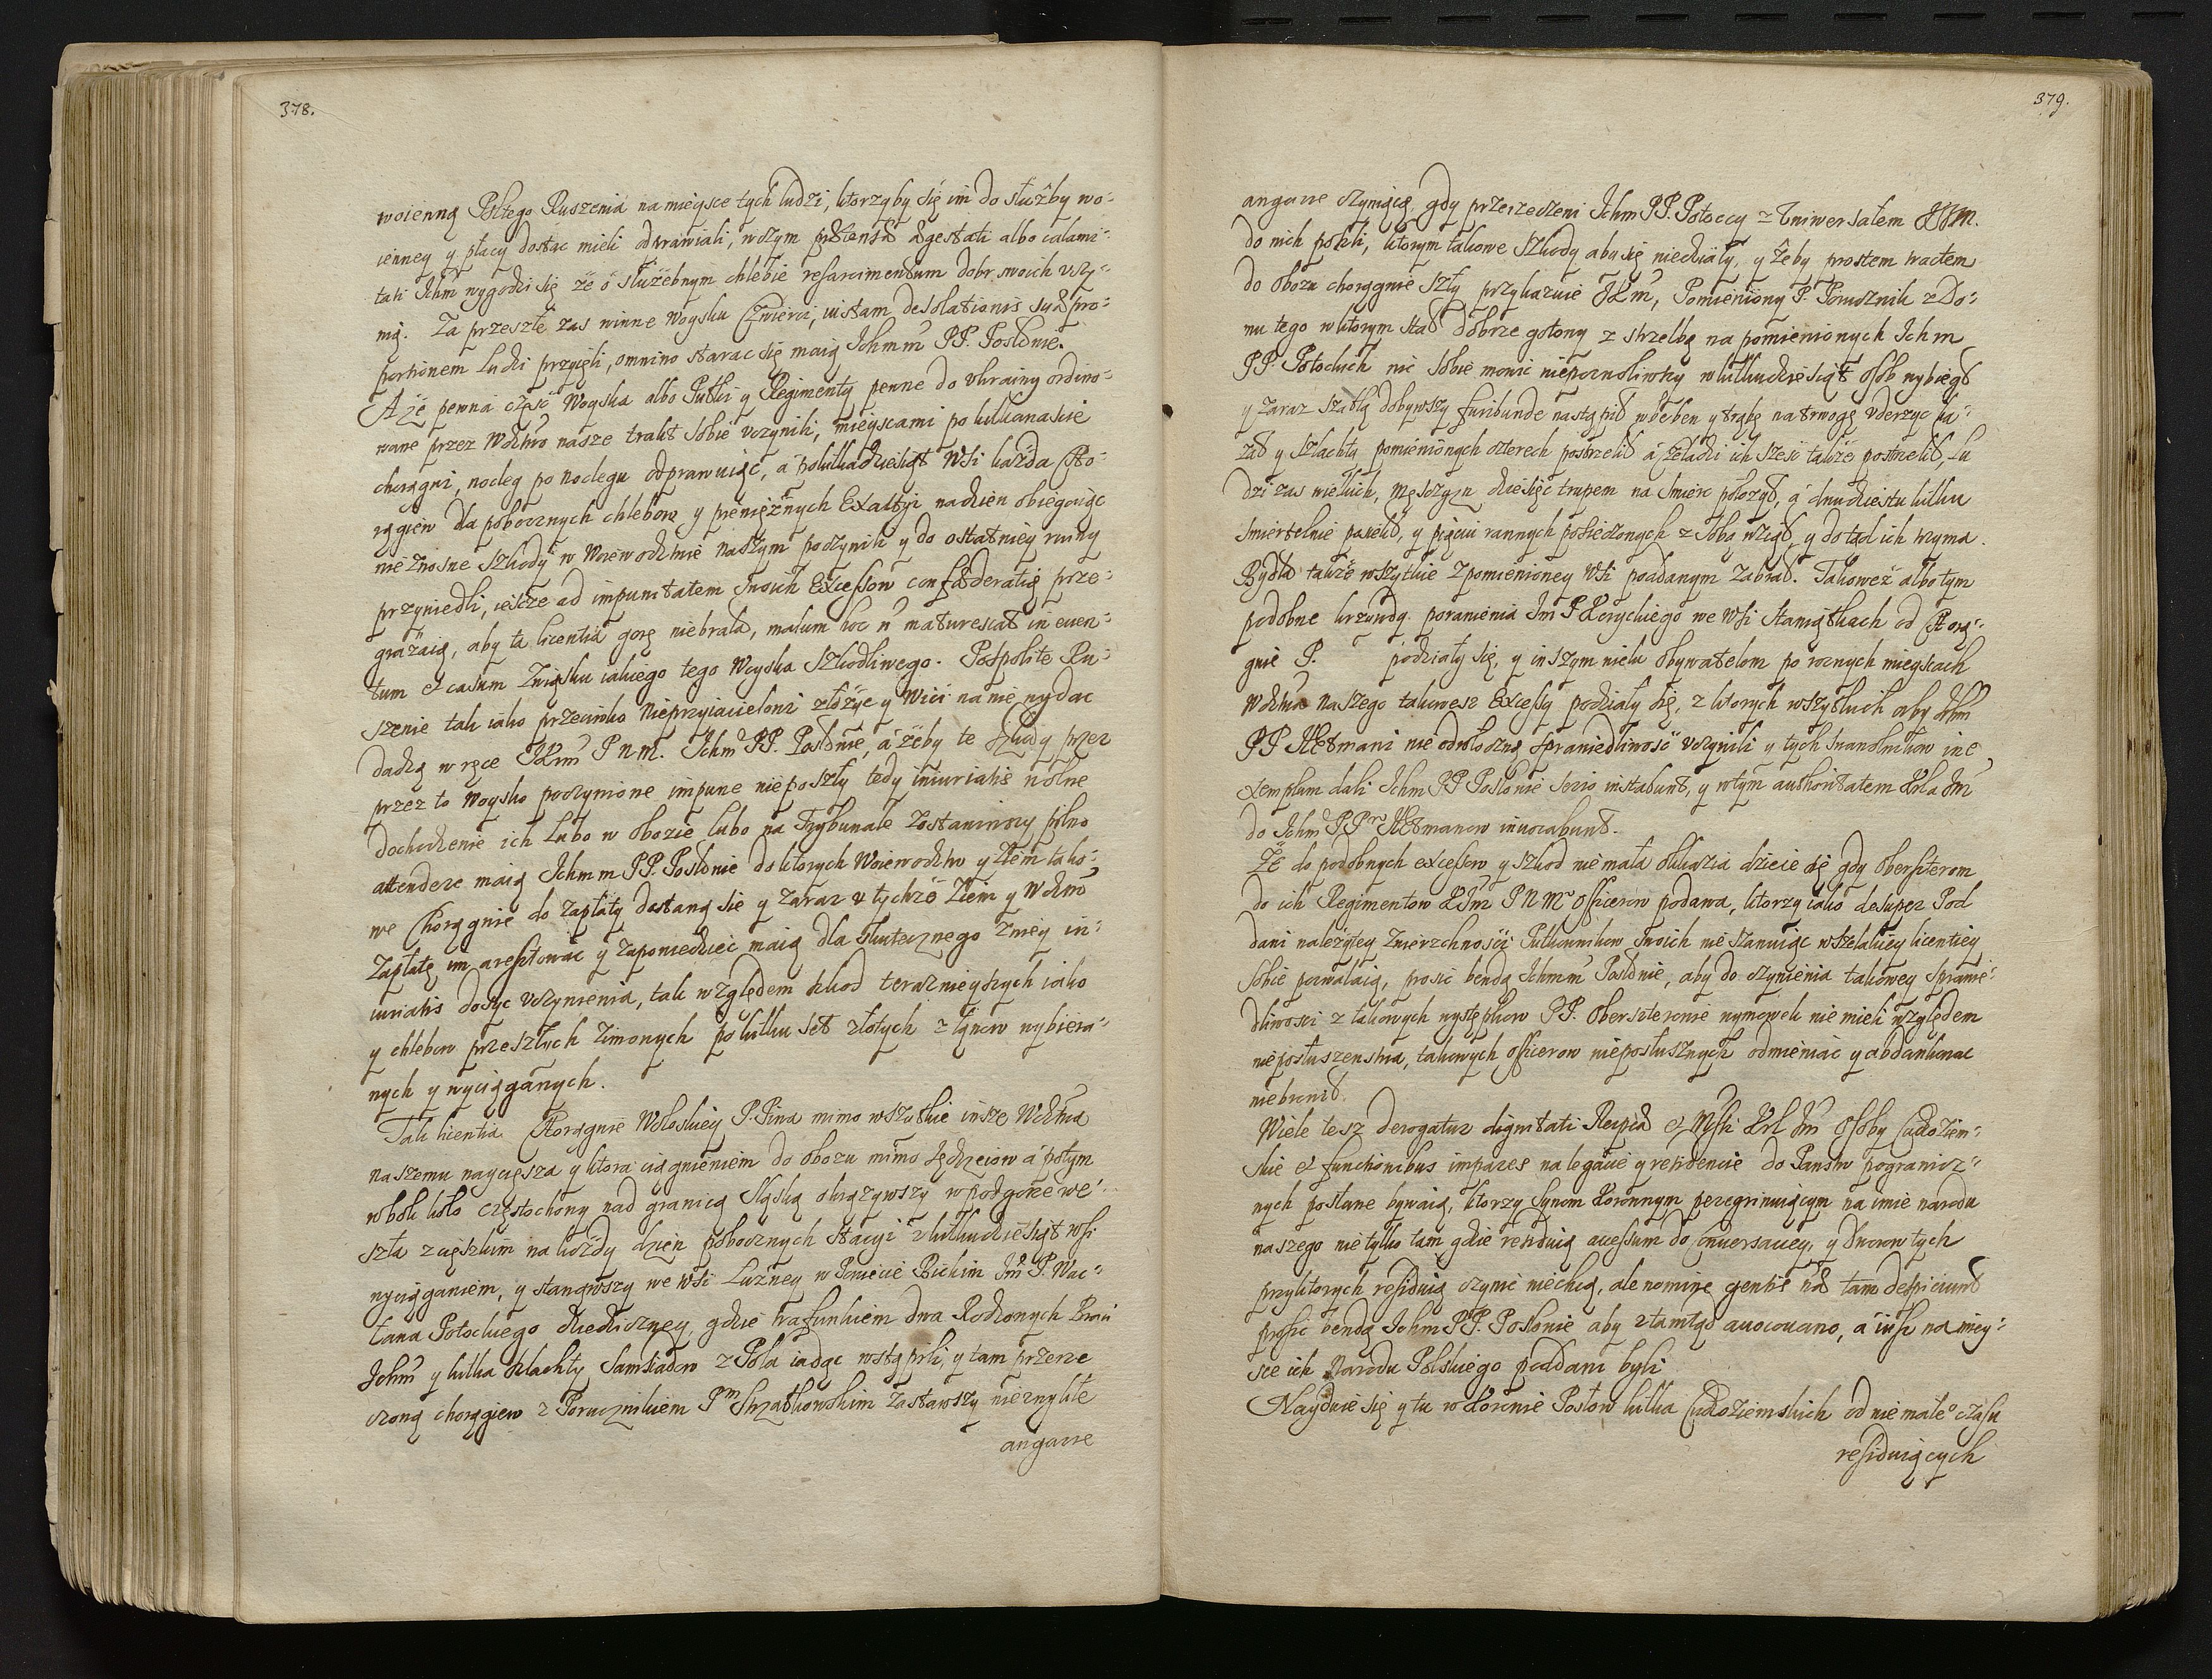 378.
woienną Pospltego Ruszenia na mieysce tych ludzi, ktorzyby się im do służby wo-
ienney y płacy dostac mieli odprawiali, w czym egestati albo calami-
tati Ichm wygodzi się że o służebnym chlebie resarcimentum dobr swoich uczy-
nią. Za przeszłe zas winne Woysku Cwierci, iustam desolationis suæ pro-
portionem Ludzi przyięli, omnino starac się maią Ichmm PP. Posłowie.
A że pewna część Woyska albo Pułki y Regimenty pewne do Ukrainy ordino-
wane przez Wdztwo nasze trakt sobie uczynili, mieyscami po kilkanascie
chorągwi, nocleg po noclegu odprawuiąc, a po kilkadziesiąt Wsi każda Cho-
rągiew dla pobocznych chlebow y pieniężnych Exakcyi na dzien obiegaiąc
nieznosne szkody w Woiewodztwie naszym poczynili y do ostatniey ruiny
przywiedli, iescze ad impunitatem swoich Excessow confœderatią prze-
grażaią, aby ta licentia gorę niebrała, malum hoc n maturescat in even-
tum et casum Związku iakiego tego Woyska szkodliwego. Pospolite Ru-
szenie tak iako przeciwko Nieprzyiacielowi złożyc y Wici na nie wydac
dadzą w ręce JKrm P n m. Ichm PP. Posłowie, a żeby te szkody przez
przez to Woysko poczynione impune nieposzły tedy iniuriatis wolne
dochodzenie ich Lubo w obozie lubo na Trybunale zostawiwszy pilno
attendere maią Ichmm PP. Posłowie do ktorych Woiewodztw y Ziem tako-
we Chorągwie do Zapłaty dostaną się y zaraz u tychże Ziem y Wdztw
Zapłatę im aresztować y zapowiedzieć maią dla skutecznego z niey in-
iuriatis dosyc uczynienia, tak względem szkod teraznieyszych iako
y chlebow przeszłych Zimowych po kilku set złotych z łanow wybiera-
nych y wyciąganych.
Tak licentia Chorągwie Wołoskiey P. Piwa mimo wszytkie insze Wdztwa
naszemu nayciesza y ktora ciągnieniem do obozu mimo Jędrzeiow a potym
w bok koło Częstochowy nad granicą Sląską okrążywszy w podgorze we-
szła z cięszkim na każdy dzien pobocznych stacyi z kilkudziesiąt wsi
wyciąganiem, y stanąwszy we wsi Lużney w Powiecie Bieckim Jm P. Wac-
ława Potockiego dziedziczney, gdzie trafunkiem dwa Rodzonych Braci
Ichm y kilka szlachty Samsiadow z Pola iadąc wstąpili, y tam przerze
czoną chorągiew z Porucznikiem Pm Skrzatkowskim zastawszy niezwykłe
angarie
379.
angarie czyniącą, gdy przerzeczeni Ichm PP. Potoccy z Uniwersałem JKM.
do nich poszli, ktorym takowe szkody aby się niedziały, y żeby prostem tractem
do obozu chorągwie szły przykazuie JKm, Pomieniony P. Porucznik z Do-
mu tego w ktorym stał dobrze gotowy z strzelbą na pomienionych Ichm
PP. Potockich nic sobie mowic niepozwoliwszy w kilkudziesiąt osob wybiegł
y zaraz szablą dobywszy furibunde nastąpił w bęben y trąbę na trwogę uderzyc ka-
zał y Szlachtą pomienionych czterech postrzelił a czeladzi ich sześc także postrzelił, Lu
dzi zas wielkich, męsczyzn dziesięc trupem na smierc położył, a dwudziestu kilku
smiertelnie pasielił, y pięciu rannych posieczonych z sobą wziął, y dotąd ich trzyma.
Bydła także wszytkie z pomienioney Wsi poddanym zabrał. Takoweż albo tym
podobne krzywdy poranienia Jm P. Koryckiego we Wsi Staniątkach od Chorą-
gwie P. podziały się, y inszym wielu obywatelom po roznych mieyscach
Wdztwa naszego takowesz Excessy podziały się, z ktorych wszytkich aby Ichm
PP Hetmani nieodwłoczną sprawiedliwość uczynili y tych Swawolnikow in e
xemplum dali Ichm PP. Posłowie serio instabunt, y w tym authoritatem Krla Jm
do Ichm PPw Hetmanow invocabunt.
Że do podobnych excessow y szkod nie mała okkazia dzieie się gdy Obersterom
do ich Regimentow KJm P N Mw Officerow podawa, ktorzy iako desuper Pod
dani należytey zwierzchności Pułkownikow swoich nie szanuiąc wszelakiey licentiey
sobie pozwalaią, prosic bendą Ichmm Posłowie, aby do czynienia takowey sprawie-
dliwosci z takowych występkow PP. Oberszterowie wymowek nie mieli względem
nieposłuszenstwa, takowych officerow nieposłusznych odmieniac y abdankowac
niebronił.
Wiele tesz derogatur dignitati Reipcæ et Mśti Krl Jm Osoby Cudoziem-
skie et functionibus impares na legacie y residencie do Panstw pogranicz-
nych posłane bywaią, ktorzy Synom Koronnym peregrinuiącym na imie narodu
naszego nie tylko tam gdzie residuią accessum do Conversacey, y Dworow tych
przy ktorych residuią czynic niechcą, ale nomine gentis næ tam despiciunt
prosic bendą Ichm PP. Posłowie aby ztamtąd avocowano, a inszi na miey-
sce ich Narodu Polskiego poddani byli
Nayduie się y tu w Koronie Posłow kilka Cudoziemskich od nie małeo czasu
residuiących